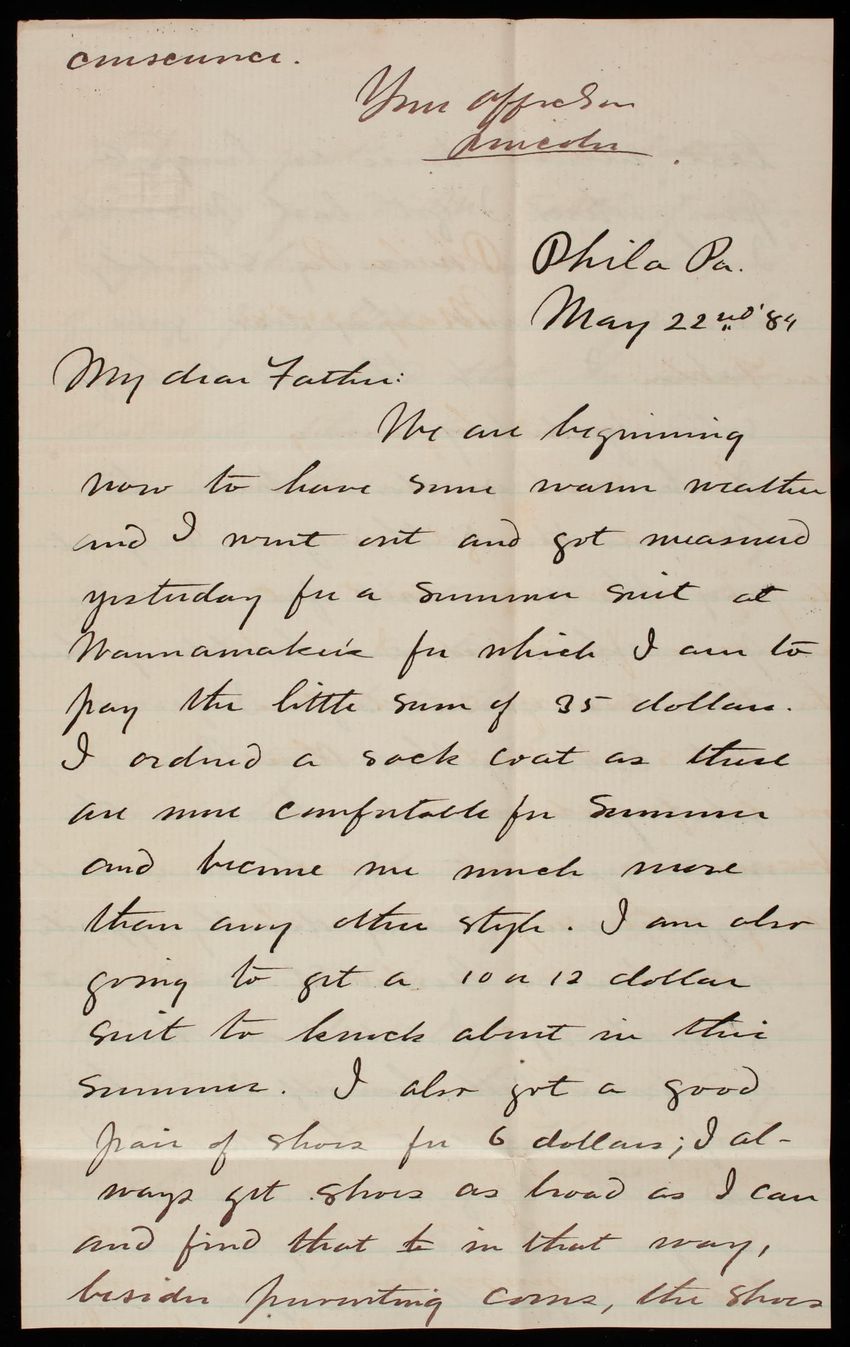 Your affec Son
Lincoln
Phila Pa.
May 22nd '84
My dear Father:
We are beginning
now to have some warm weather
and I went out and got measured
yesterday for a summer suit at
Wannamaker's for which I am to
pay the little sum of 35 dollars.
I ordered a sack coat as these
are more comfortable for summer
and become me much more
than any other style. I am also
going to get a 10 or 12 dollar
suit to knock about in this
summer. I also got a good
pair of shoes for 6 dollars; I al-
ways get shoes as broad as I can
and find that in that way,
besides preventing corns, the shoes